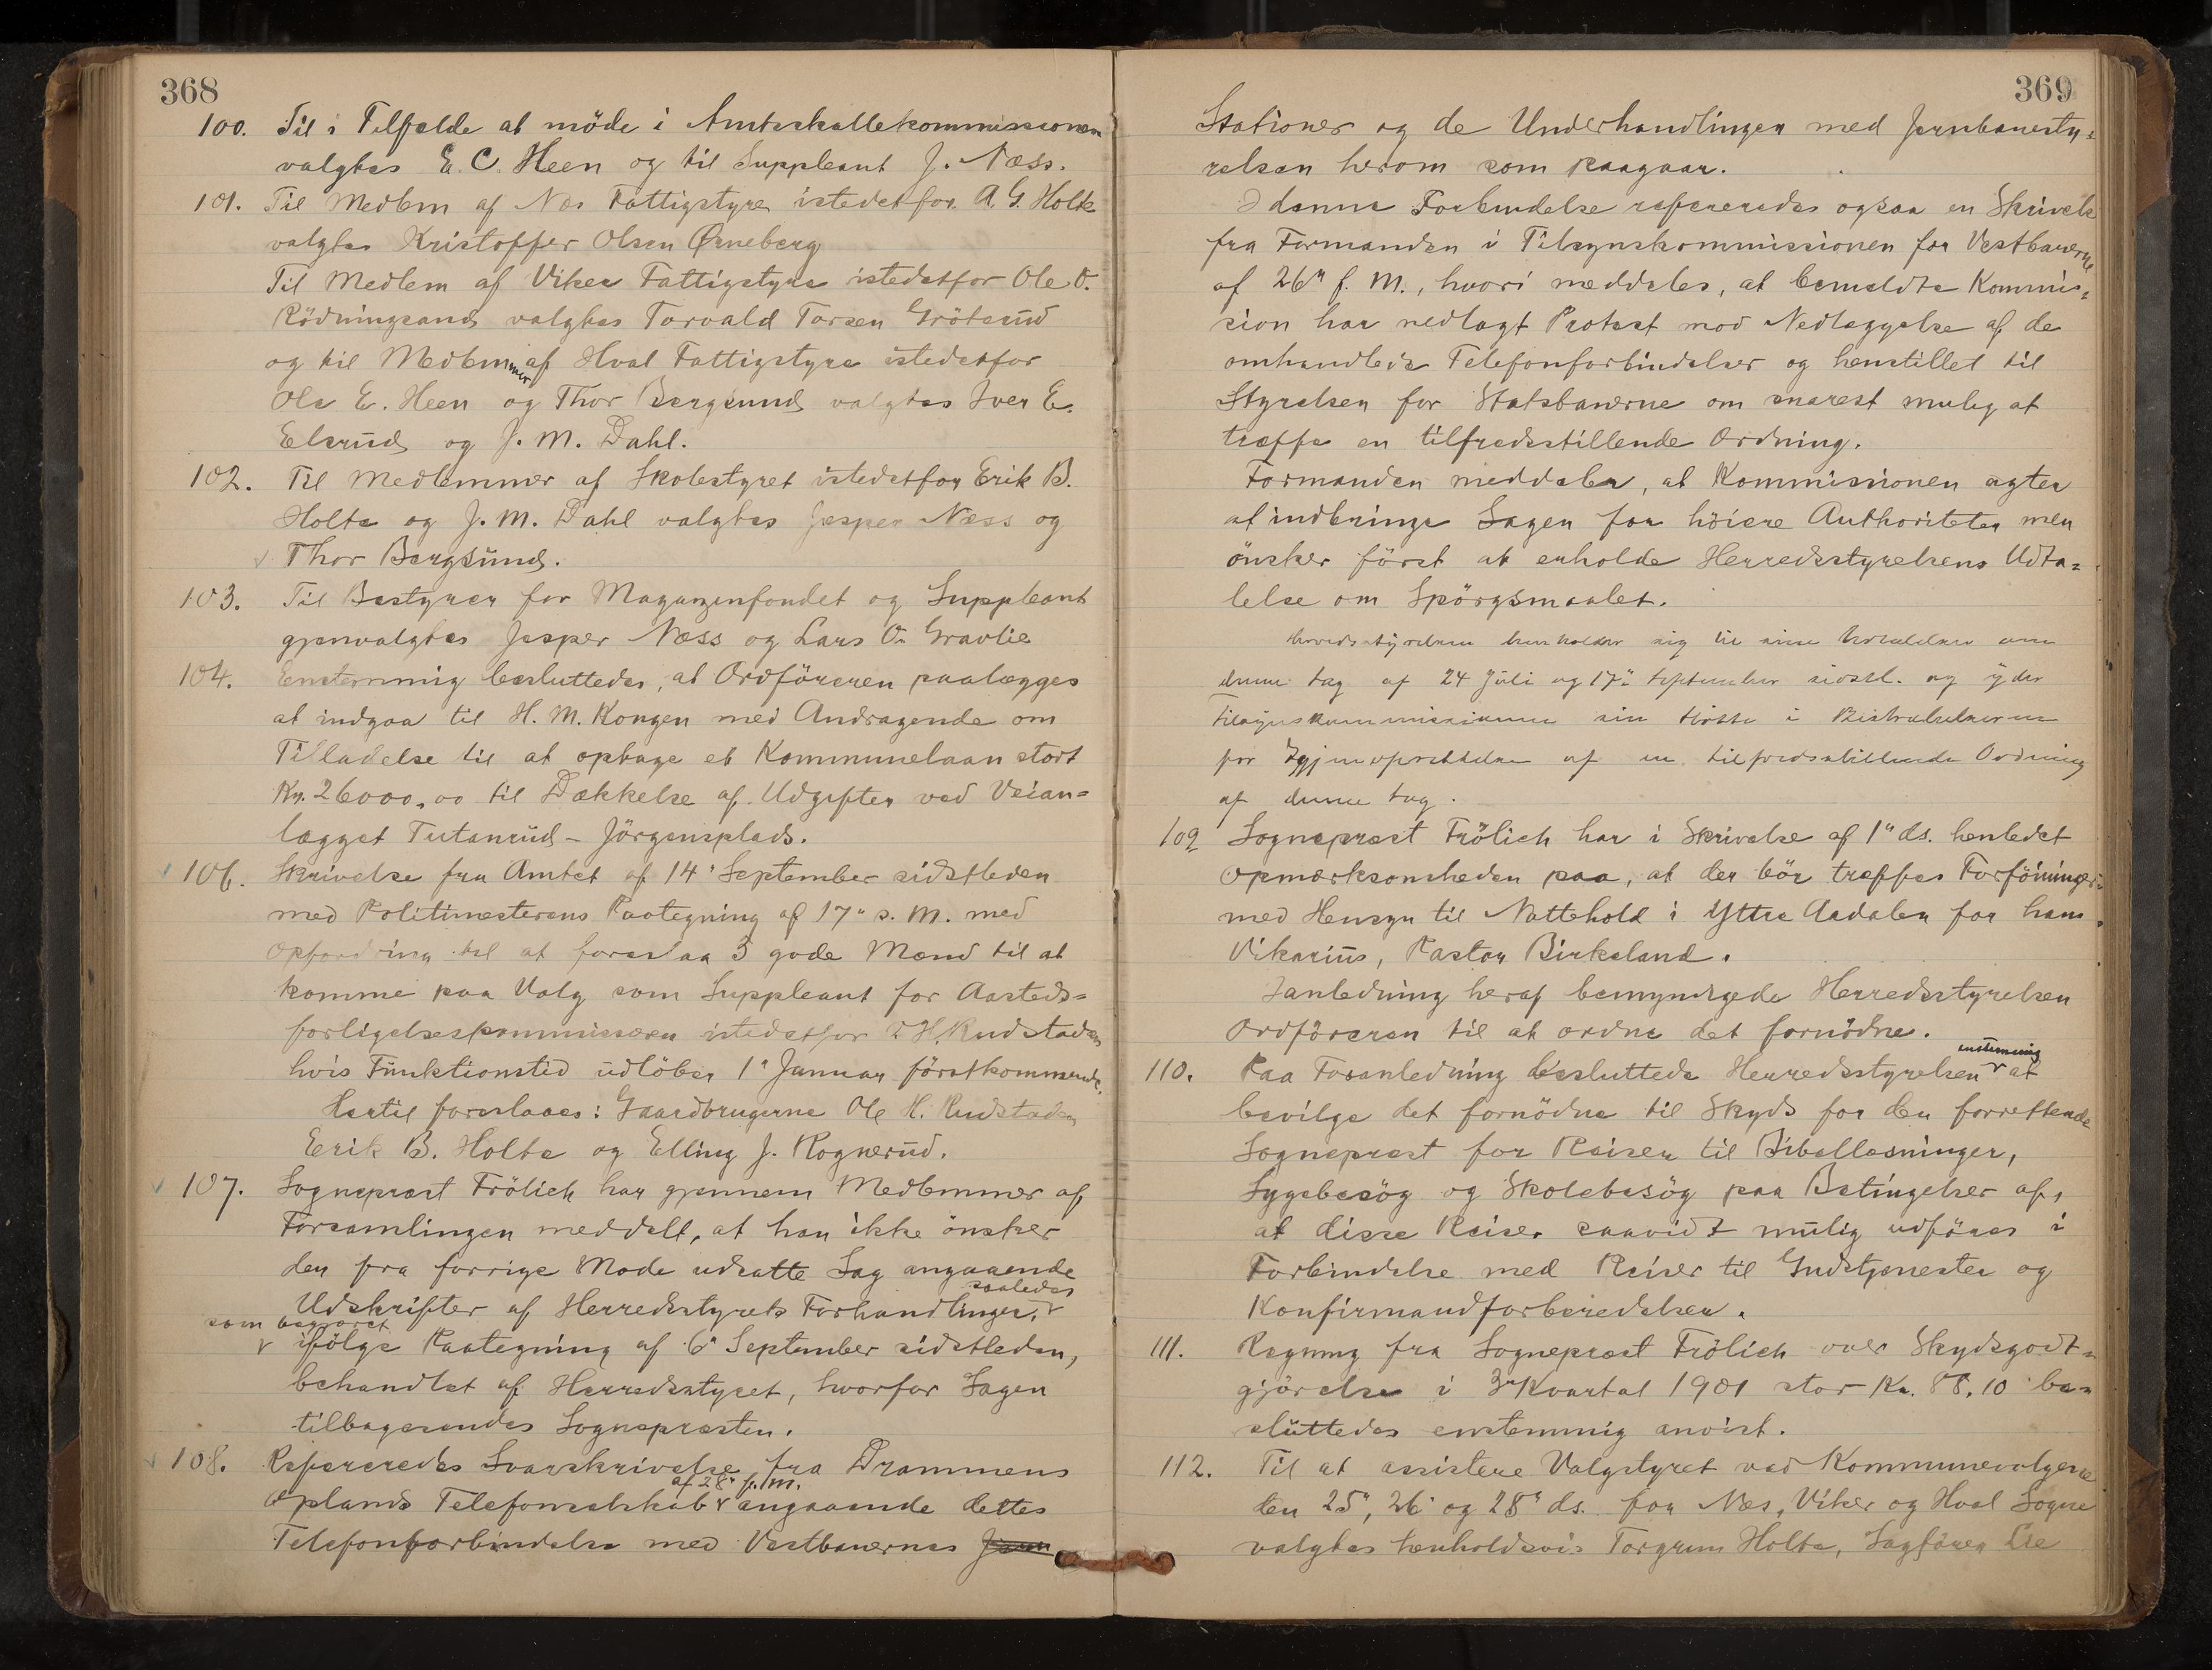 368
100. Til i Tilfælde at möde i Amtsskattekommissionen
valgtes E. C. Heen og til Suppleant J. Næss.
101. Til Medlem af Næs Fattigstyre istedetfor A. G. Holte
valgtes Kristoffer Olsen Ørneberg
Til Medlem af Viker Fattigstyre istedetfor Ole O.
Rödningsand valgtes Torvald Torsen Gröterud
og til Medlemmer af Hval Fattigstyre istedetfor
Ole E. Heen og Thor Bergsund valgtes Iver E.
Elsrud og J. M. Dahl.
102. Til Medlemmer af Skolestyret istedetfor Erik B.
Holte og J. M. Dahl valgtes Jesper Næss og
Thor Bergsund.
103. Til Bestyrer for Magazinfondet og Suppleant
gjenvalgtes Jesper Næss og Lars O. Gravlie
104. Enstemmig besluttedes, at Ordföreren paalægges
at indgaa til H. M. Kongen med Andragende om
Tilladelse til at optage et Kommunelaan stort
Kr. 26000,00 til Dækkelse af Udgifter ved Veian=
lægget Tutanrud - Jörgensplads.
106. Skrivelse fra Amtet af 14" September sidstleden
med Politimesterens Paategning af 17" s. M. med
Opfordring til at foreslaa 3 gode Mænd til at
komme paa Valg som Suppleant for Aasteds=
forligelseskommissæren istedetfor O. H. Rudstaden
hvis Funktionstid udlöber 1" Januar förstkommende.
Hertil foreslaaes: Gaardbrugerne Ole H. Rudstaden
Erik B. Holte og Elling J. Rognerud.
107. Sogneprest Frölich har gjennem Medlemmer af
Forsamlingen meddelt, at han ikke önsker
den fra forrige Möde udsatte Sag angaaende
Udskrifter af Herredsstyrets Forhandlinger, saaledes
som begjæret ifölge Paategning af 6" September sidstleden,
behandlet af Herredsstyret, hvorfor Sagen
tilbagesendes Sognepresten.
108. Refereredes Svarskrivelse fra Drammens
Oplands Telefonselskab af 28" f. M. angaaende dettes
Telefonforbindelse med Vestbanernes Jern
369
Stationer og de Underhandlinger med Jernbanesty=
relsen herom som paagaar.
I denne Forbindelse refereredes ogsaa en Skrivelse
fra Formanden i Tilsynskommissionen for Vestbanerne
af 26" f. M., hvori meddeles, at bemeldte Kommis=
sion har nedlagt Protest mod Nedlæggelse af de
omhandlede Telefonforbindelser og henstillet til
Styrelsen for Statsbanerne om snarest mulig at
træffe en tilfredsstillende Ordning.
Formanden meddeler, at Kommissionen agter
at indbringe Sagen for höiere Authoriteter men
önsker först at erholde Herredsstyrelsens Udta=
lelse om Spörgsmaalet.
Herredsstyrelsen henholder sig til sine Udtalelser om
denne Sag af 24 Juli og 17" September sidstl. og yder
Tilsynskommissionen sin Stötte i Bestræbelserne
for Igjenoprettelse af en tilfredsstillende Ordning
af denne Sag.
109 Sogneprest Frölich har i Skrivelse af 1" ds. henledet
Opmærksomheden paa, at der bör træffes Forföininger
med Hensyn til Nattehold i Yttre Aadalen for hans
Vikarius, Pastor Birkeland.
I anledning heraf bemyndigede Herredsstyrelsen
Ordföreren til at ordne det fornödne.
110. Paa Foranledning besluttede Herredsstyrelsen enstemmig at
bevilge det fornödne til Skyds for den forrettende
Sogneprest for Reiser til Bibellæsninger,
Sygebesög og Skolebesög paa Betingelser af,
at disse Reiser saavidt mulig udföres i
Forbindelse med Reiser til Gudstjenester og
Konfirmandforberedelser.
111. Regning fra Sogneprest Frölich over Skydsgodt=
gjörelse i 3" Kvartal 1901 stor Kr. 88,10 be=
sluttedes enstemmig anvist.
112. Til at assistere Valgstyret ved Kommunevalgene
den 25", 26" og 28" ds. for Næs, Viker og Hval Sogne
valgtes henholdsvis Torgrim Holte, Sagförer Lie